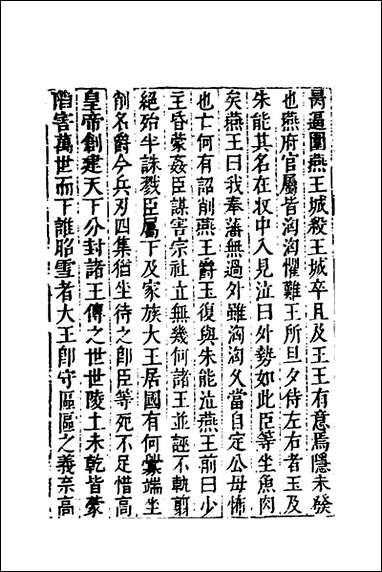 昺逼圍燕王城殺王城卒且及王王有意焉隱未發
也燕府官屬皆洶洶懼難王所旦夕待左右者玉及
朱能其名在牧中入見泣曰外勢如此臣等坐魚肉
矣燕王曰我奉藩無過外雖洶洶久當自定公毋怖
也亡何有詔削燕王爵玉復與朱能泣燕王前曰少
主昏蒙姦臣謀害宗社立無幾何諸王並誣不軌剪
絕殆半誅戮臣屬下及家族大王居國有何釁端坐
削名爵今兵刃四集猶坐待之卽臣等死不足惜高
皇帝創建天下分封諸王傳之世世陵土未乾皆蒙
䧟害萬世而下誰昭雪者大王卽守區區之義柰高